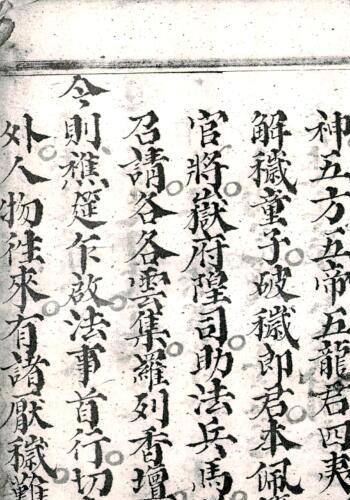 神五方五帝五龍君四夷
解穢童子破穢郎君本佩
官將嶽府隍司助法兵馬
召請各各雲集羅列香壇
今則樵筵乍啟法事首行切
外人物徃來有諸厭穢難